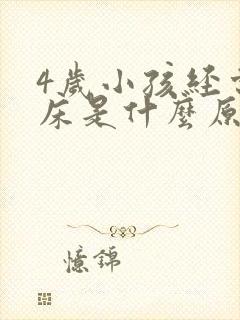 4歲小孩經
床是什麼原
憶錦